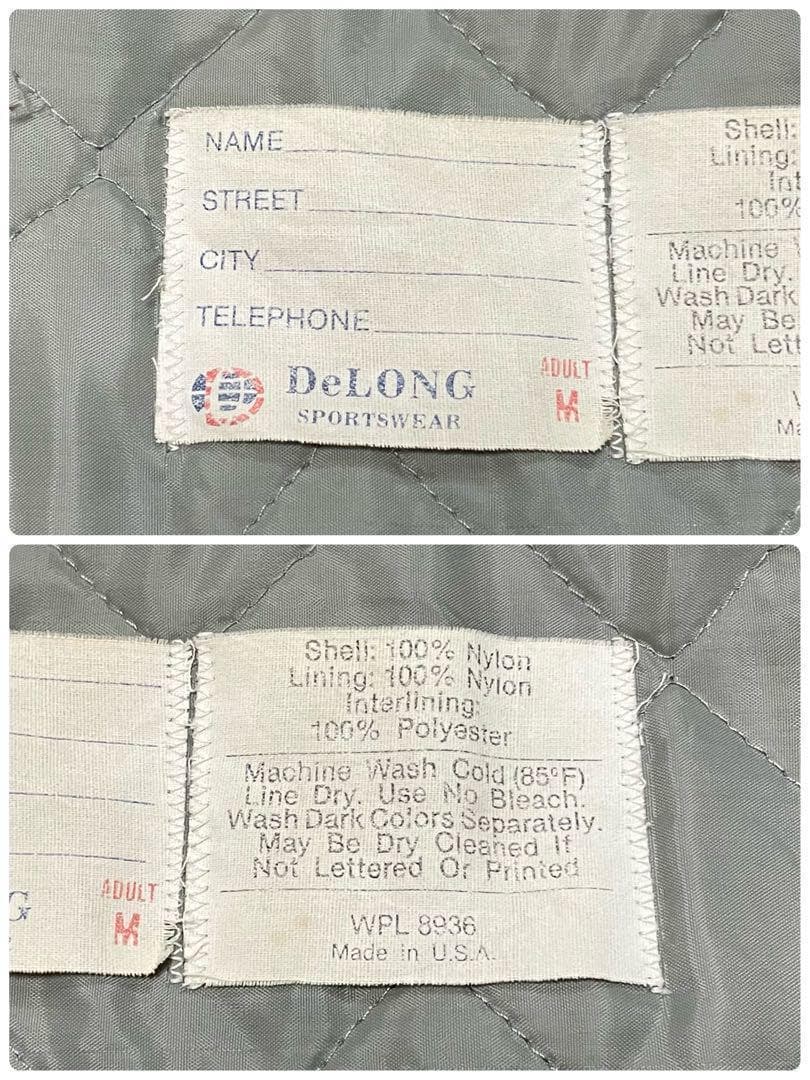 NAME
STREET
CITY
TELEPHONE
DeLONG
SPORTSWEAR
ADULT
M
Shell:
Lining:
Int
100%
Machine
Line Dry.
Wash Dark
May Be
Not Lett
Ma
G
ADULT
M
Shell: 100% Nylon
Lining: 100% Nylon
Interlining:
100% Polyester
Machine Wash Cold (85°F)
Line Dry. Use No Bleach.
Wash Dark Colors Separately.
May Be Dry Cleaned If
Not Lettered Or Printed
WPL 8936
Made in U.S.A.